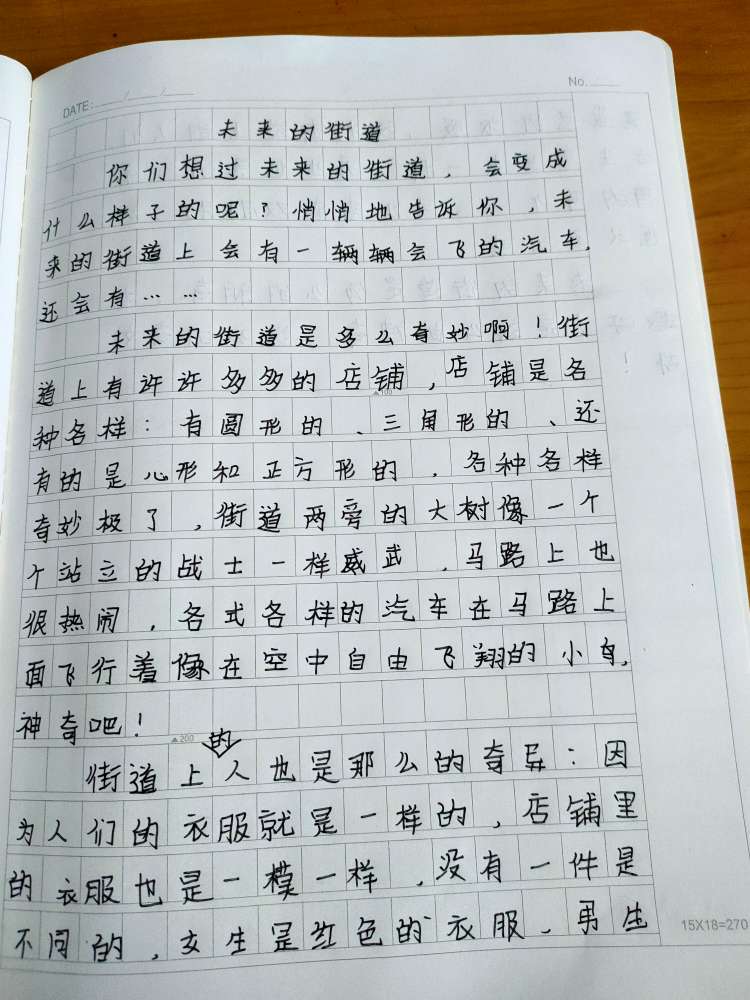 DATE: ___/___/___
No.____
未来的街道
你们想过未来的街道，会变成
什么样子的呢？悄悄地告诉你，未
来的街道上会有一辆辆会飞的汽车，
还会有……
未来的街道是多么奇妙啊！街
道上有许许多多的店铺，店铺是各
▲100
种各样：有圆形的、三角形的、还
有的是心形和正方形的，各种各样
奇妙极了，街道两旁的大树像一个
个站立的战士一样威武，马路上也
很热闹，各式各样的汽车在马路上
面飞行着像在空中自由飞翔的小鸟，
神奇吧！
▲200
的
街道上人也是那么的奇异：因
为人们的衣服就是一样的，店铺里
的衣服也是一模一样，没有一件是
不同的，女生是红色的衣服，男生
15X18=270